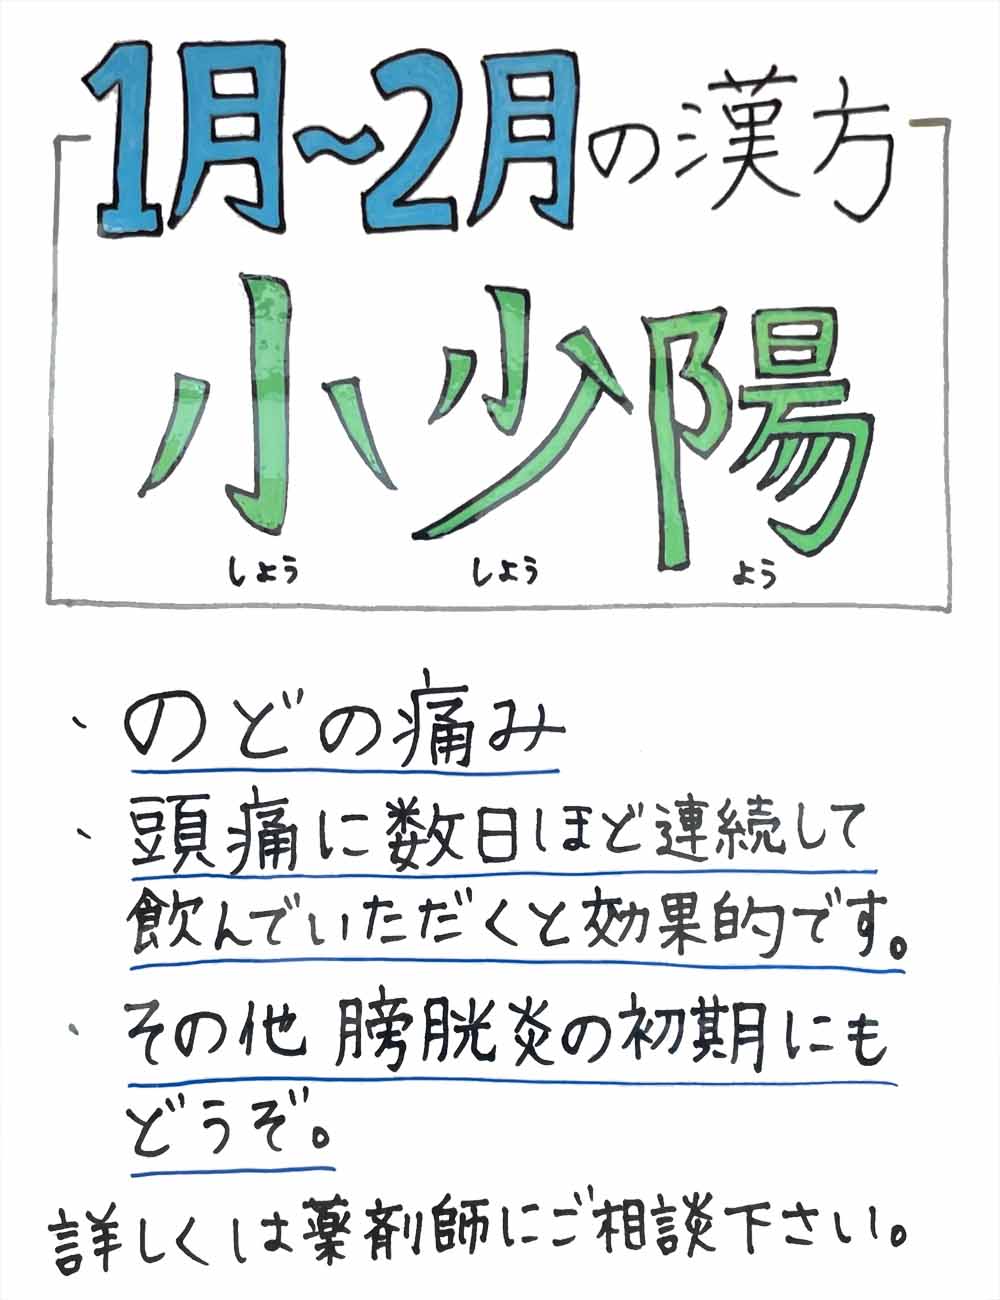 1月~2月の漢方
小少陽
しょう しょう よう
・のどの痛み
・頭痛に数日ほど連続して
飲んでいただくと効果的です。
・その他 膀胱炎の初期にも
どうぞ。
詳しくは薬剤師にご相談下さい。